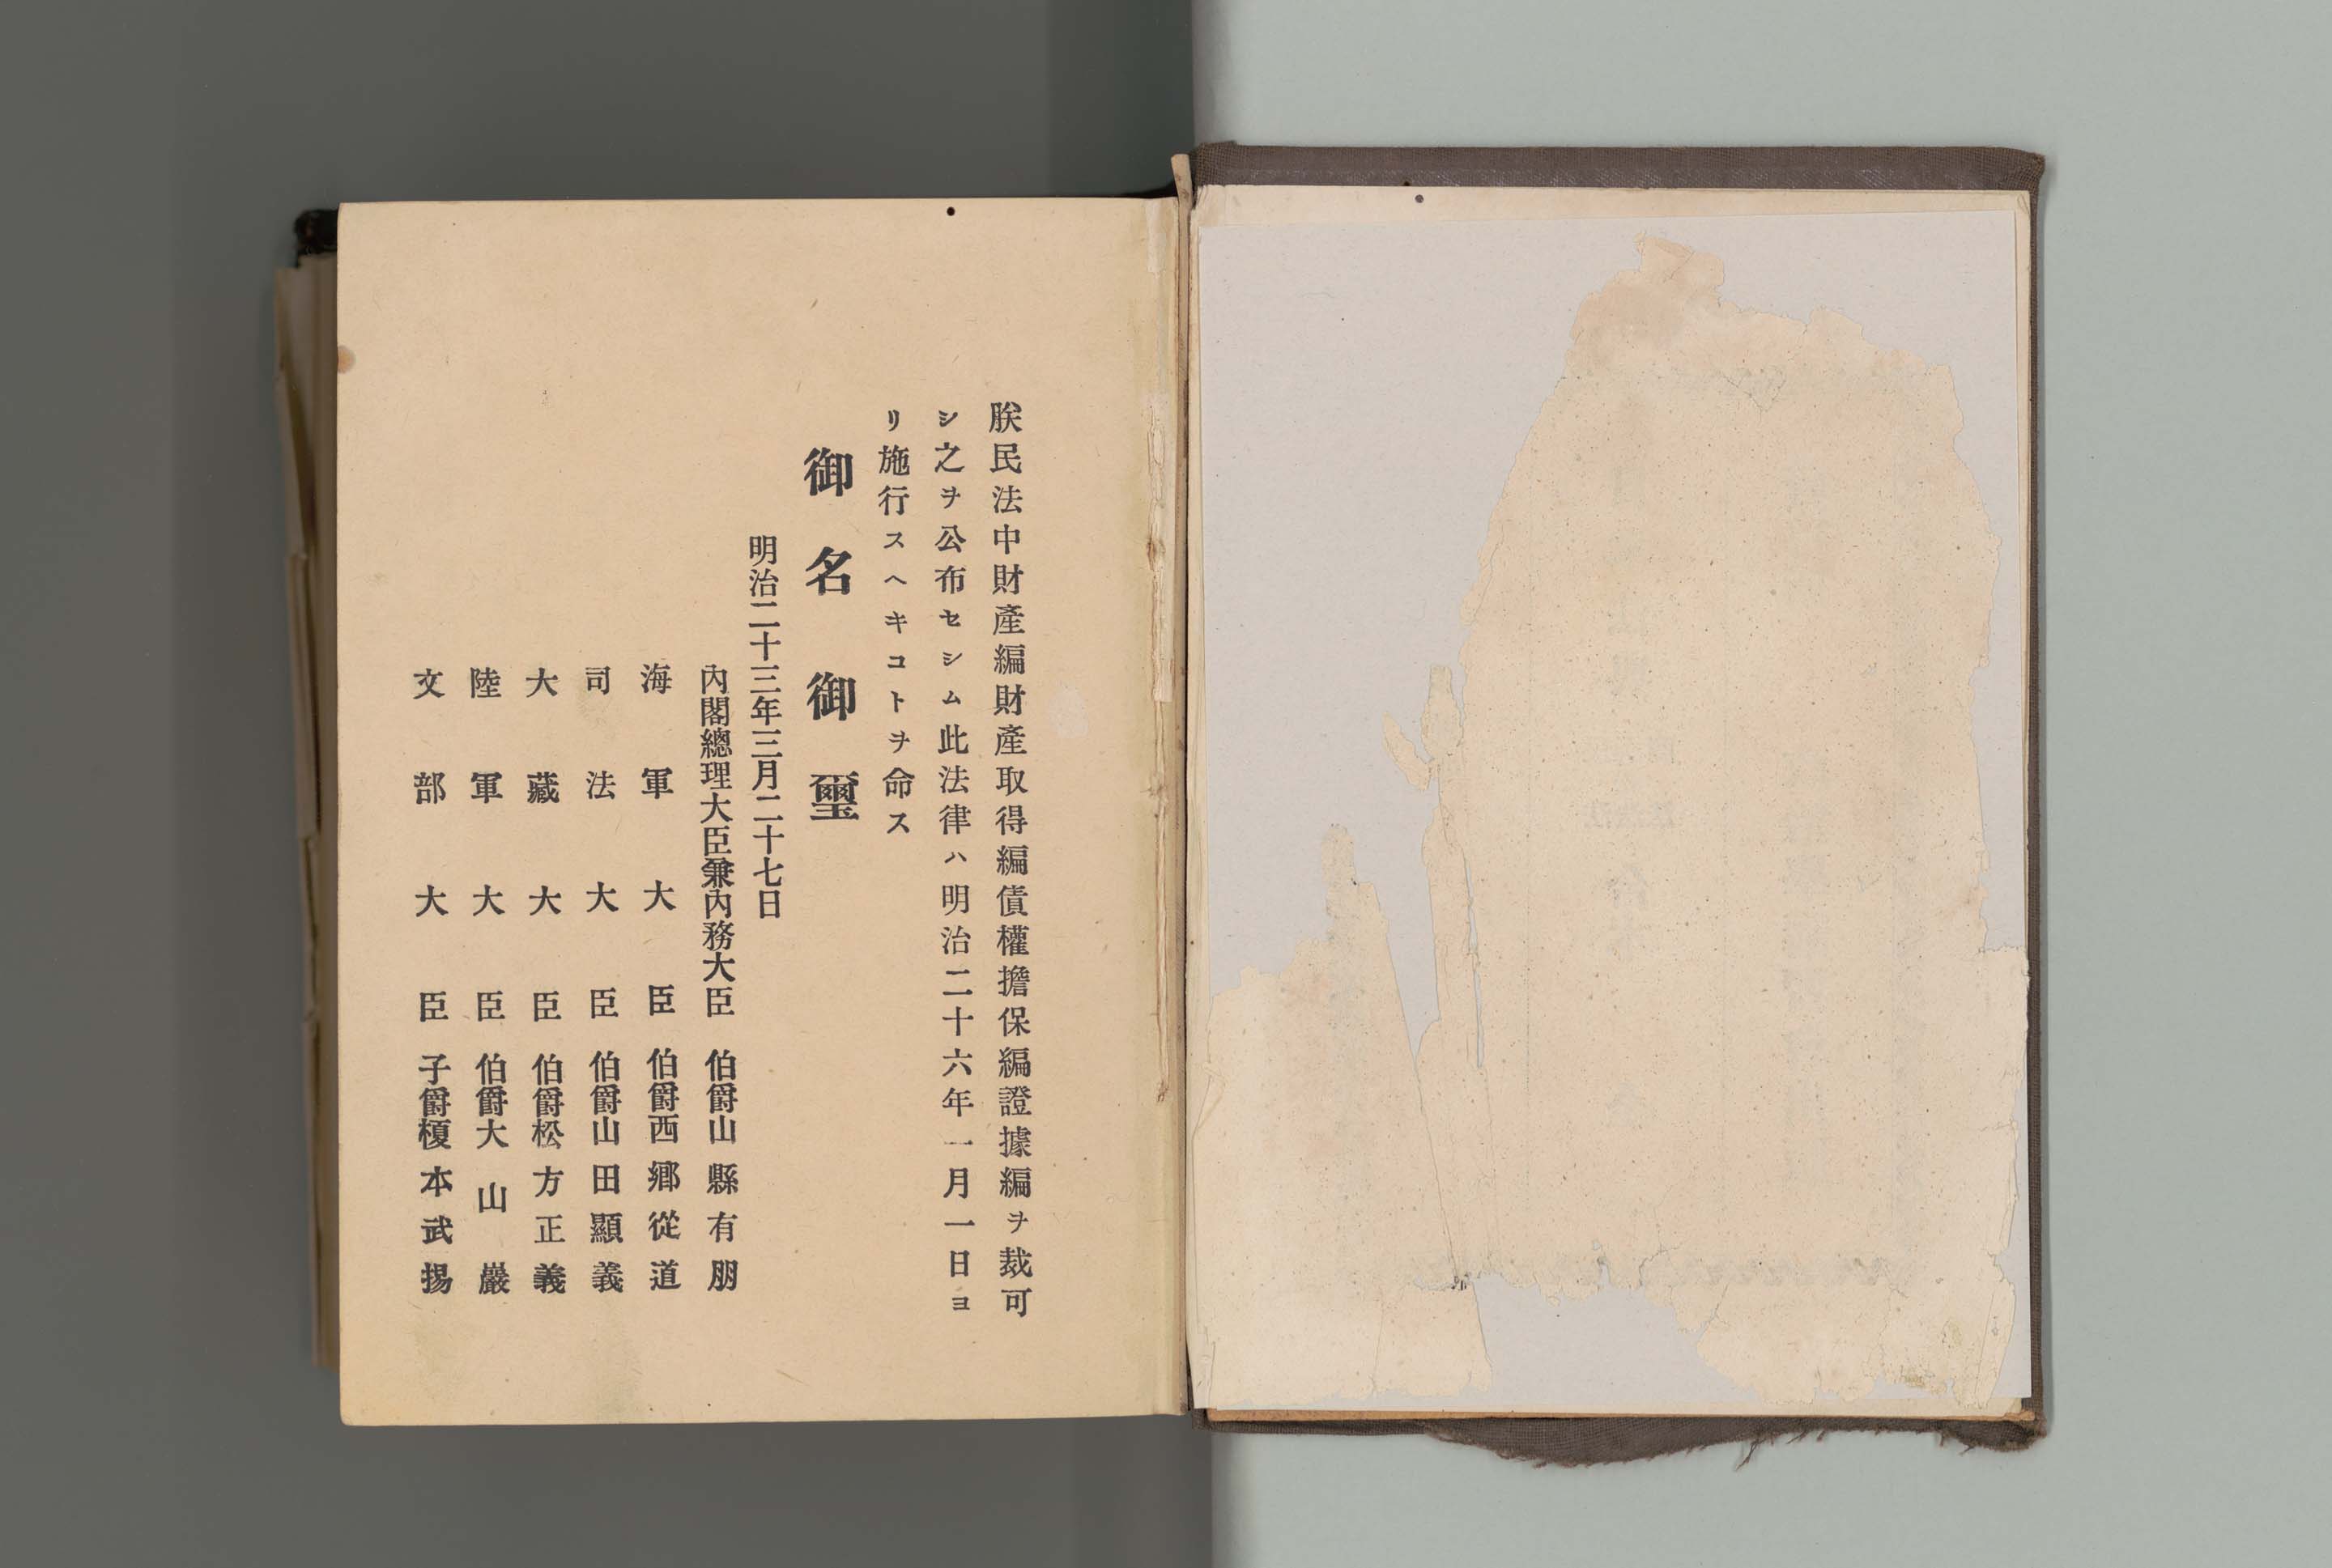 朕民法中財產編財產取得編債權擔保編證據編ヲ裁可
シ之ヲ公布セシム此法律ハ明治二十六年一月一日ヨ
リ施行スヘキコトヲ命ス
御名御璽
明治二十三年三月二十七日
內閣總理大臣兼內務大臣 伯爵山縣有朋
海軍大臣 伯爵西鄕從道
司法大臣 伯爵山田顯義
大藏大臣 伯爵松方正義
陸軍大臣 伯爵大山巖
文部大臣 子爵榎本武揚